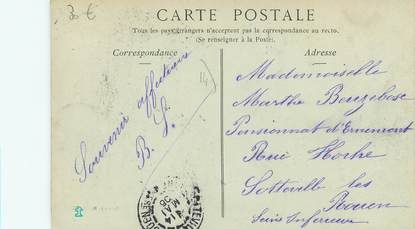 30 €
CARTE POSTALE
Tous les pays étrangers n'acceptent pas la correspondance au recto.
(Se renseigner à la Poste).
Correspondance
Adresse
Souvenir affectueux
B. S.
Mademoiselle
Marthe Bouzebosc
Pensionnat d'Ernemont
Rue Hoche
Sotteville les
Rouen
Seine Inférieure